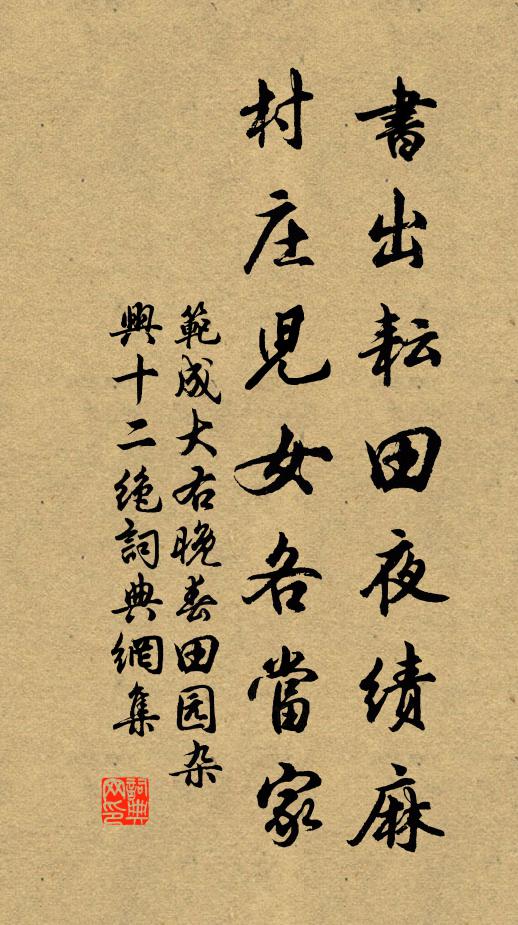 書出耘田夜绩麻
村庄児女各當家
範成大右晚春田园杂
興十二绝詞典網集
詞典
网印